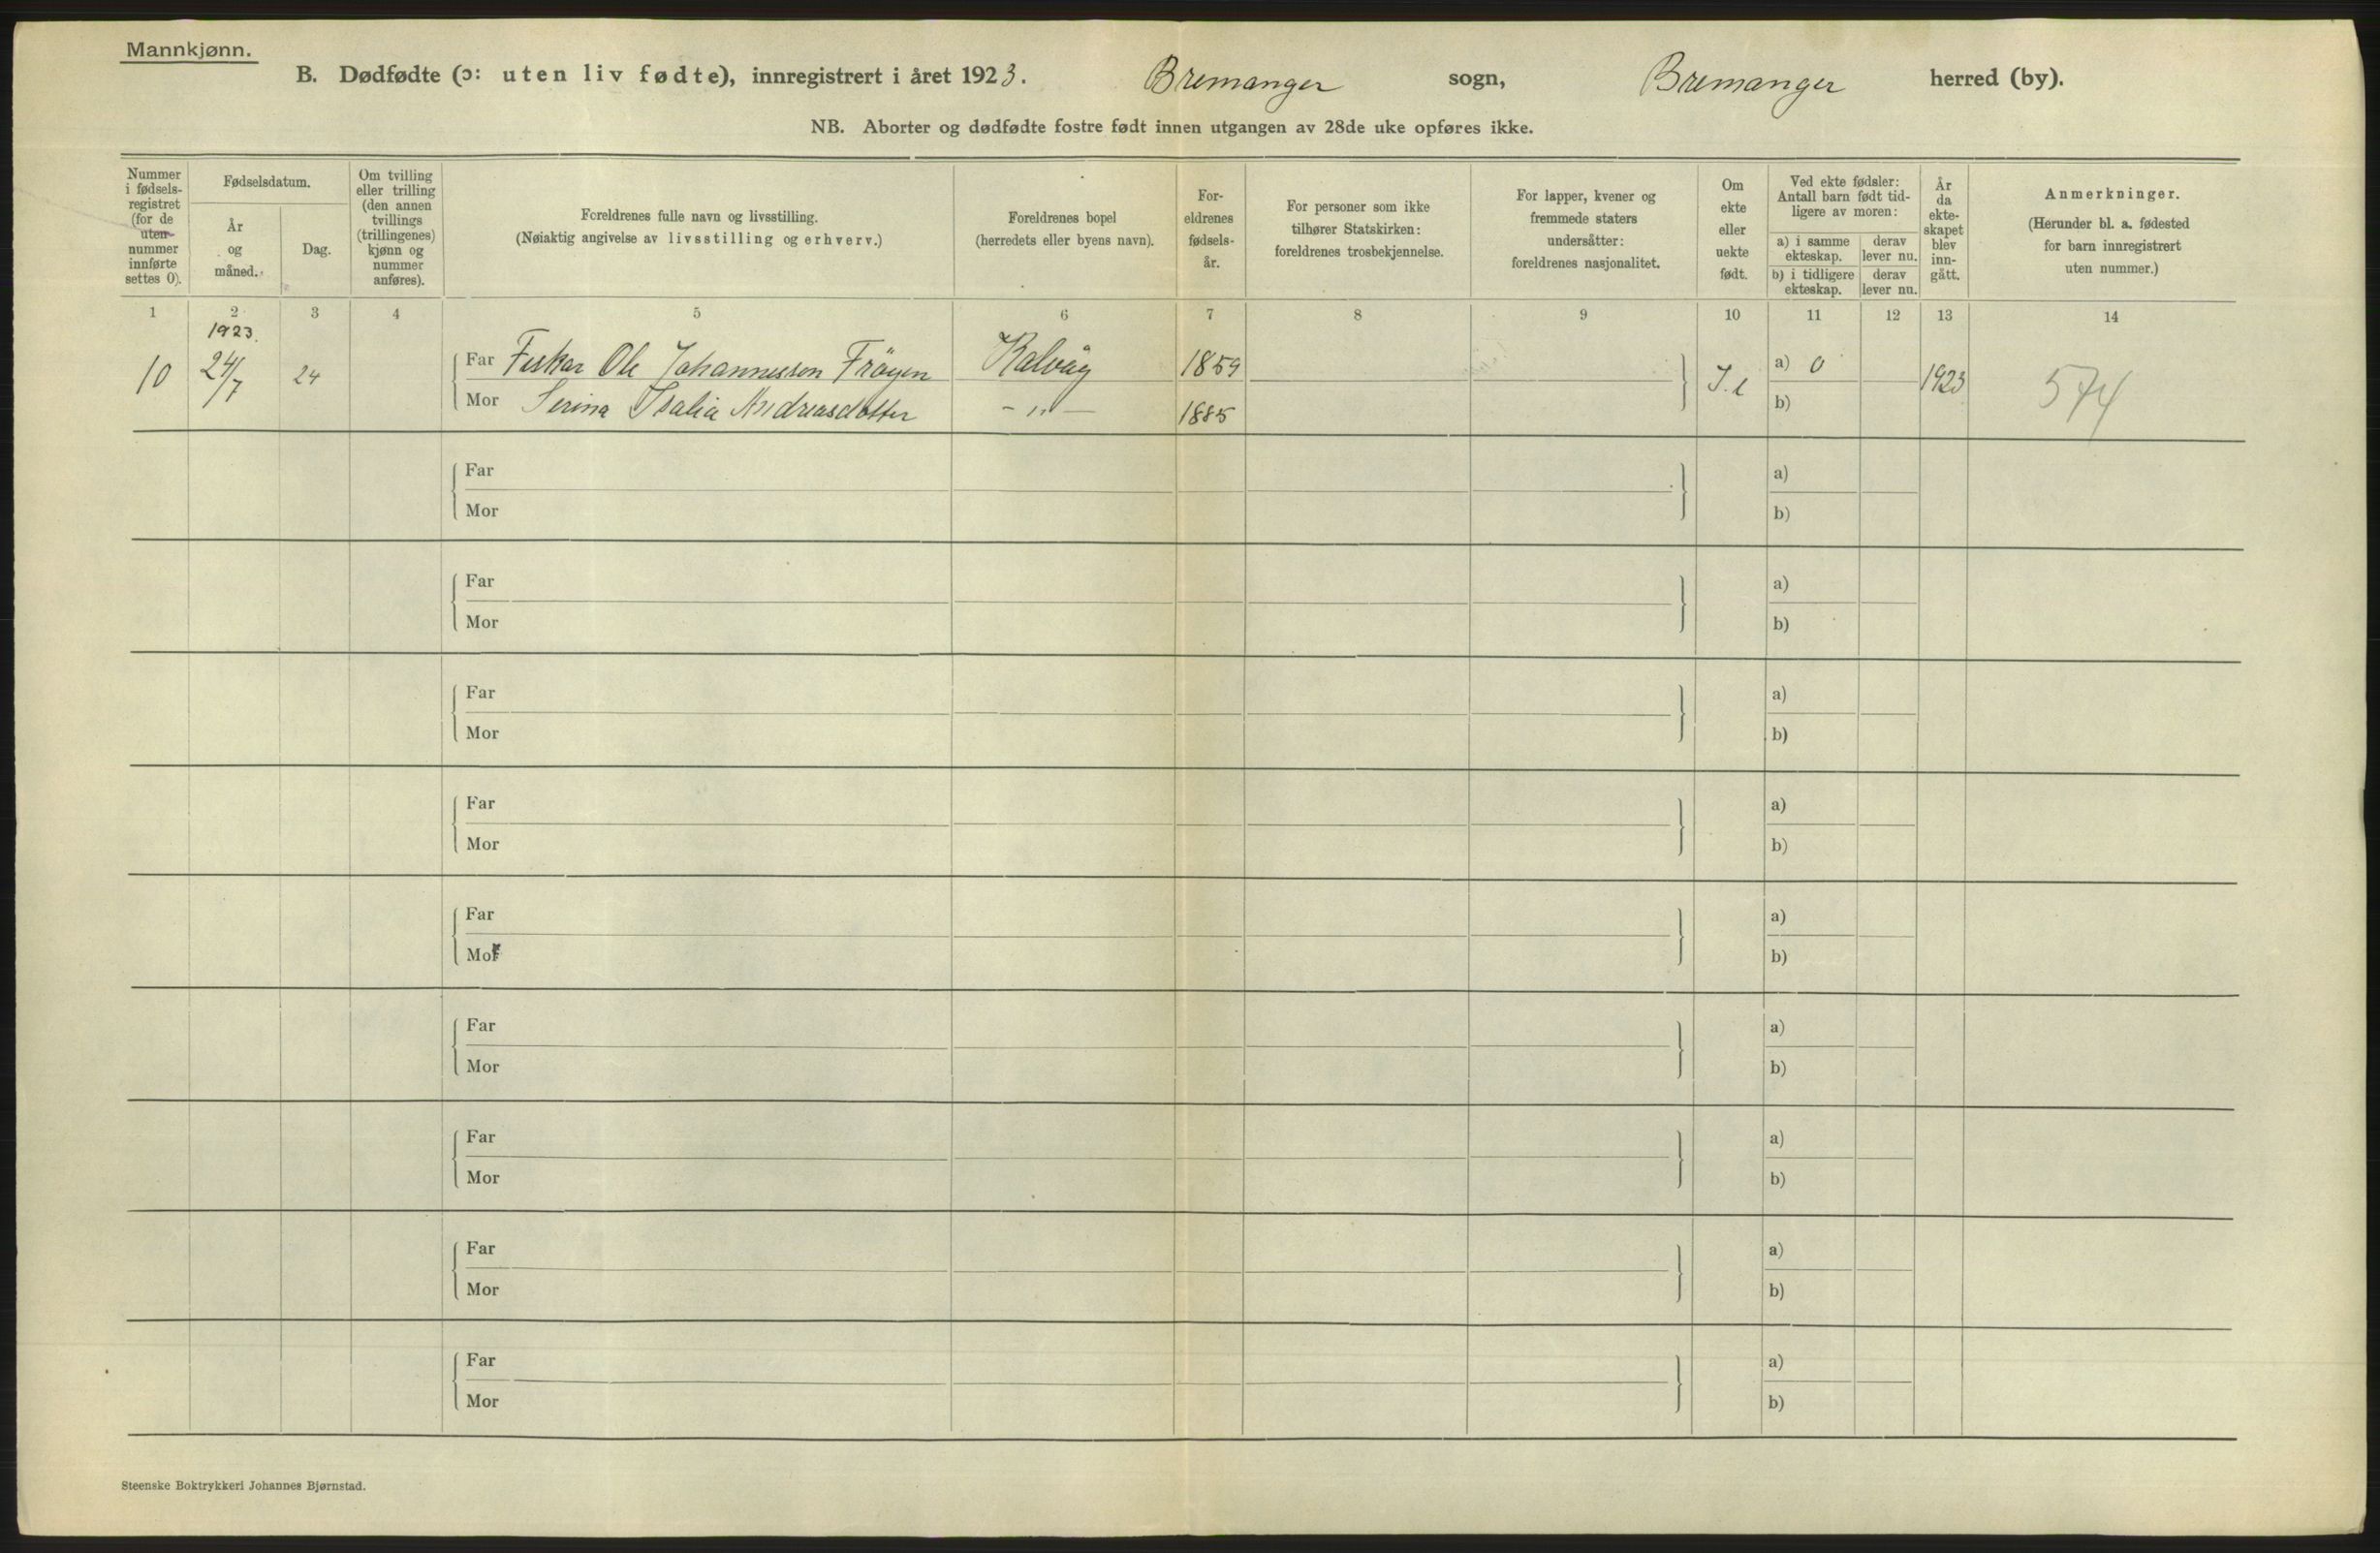 Mannkjønn.
B. Dødfødte (ɔ: uten liv fødte), innregistrert i året 1923. Bremanger sogn, Bremanger herred (by).
NB. Aborter og dødfødte fostre født innen utgangen av 28de uke opføres ikke.
Nummer i fødsels-registret (for de uten nummer innførte settes 0).
Fødselsdatum.
År og måned.
Dag.
Om tvilling eller trilling (den annen tvillings (trillingenes) kjønn og nummer anføres).
Foreldrenes fulle navn og livsstilling.
(Nøiaktig angivelse av livsstilling og erhverv.)
Foreldrenes bopel
(herredets eller byens navn).
For-eldrenes fødsels-år.
For personer som ikke tilhører Statskirken: foreldrenes trosbekjennelse.
For lapper, kvener og fremmede staters undersåtter: foreldrenes nasjonalitet.
Om ekte eller uekte født.
Ved ekte fødsler: Antall barn født tid-ligere av moren:
a) i samme ekteskap.
derav lever nu.
b) i tidligere ekteskap.
derav lever nu.
År da ekte-skapet blev inn-gått.
Anmerkninger.
(Herunder bl. a. fødested for barn innregistrert uten nummer.)
1 2 3 4 5 6 7 8 9 10 11 12 13 14
1923.
10 24/7 24 Far Fiskar Ole Johannesson Frøyen Kalvåg 1859 a) 0 1923 574
Mor Serina Thalia Andreasdotter -"- 1885 b)
Far a)
Mor b)
Far a)
Mor b)
Far a)
Mor b)
Far a)
Mor b)
Far a)
Mor b)
Far a)
Mor b)
Far a)
Mor b)
Far a)
Mor b)
Far a)
Mor b)
Steenske Boktrykkeri Johannes Bjørnstad.